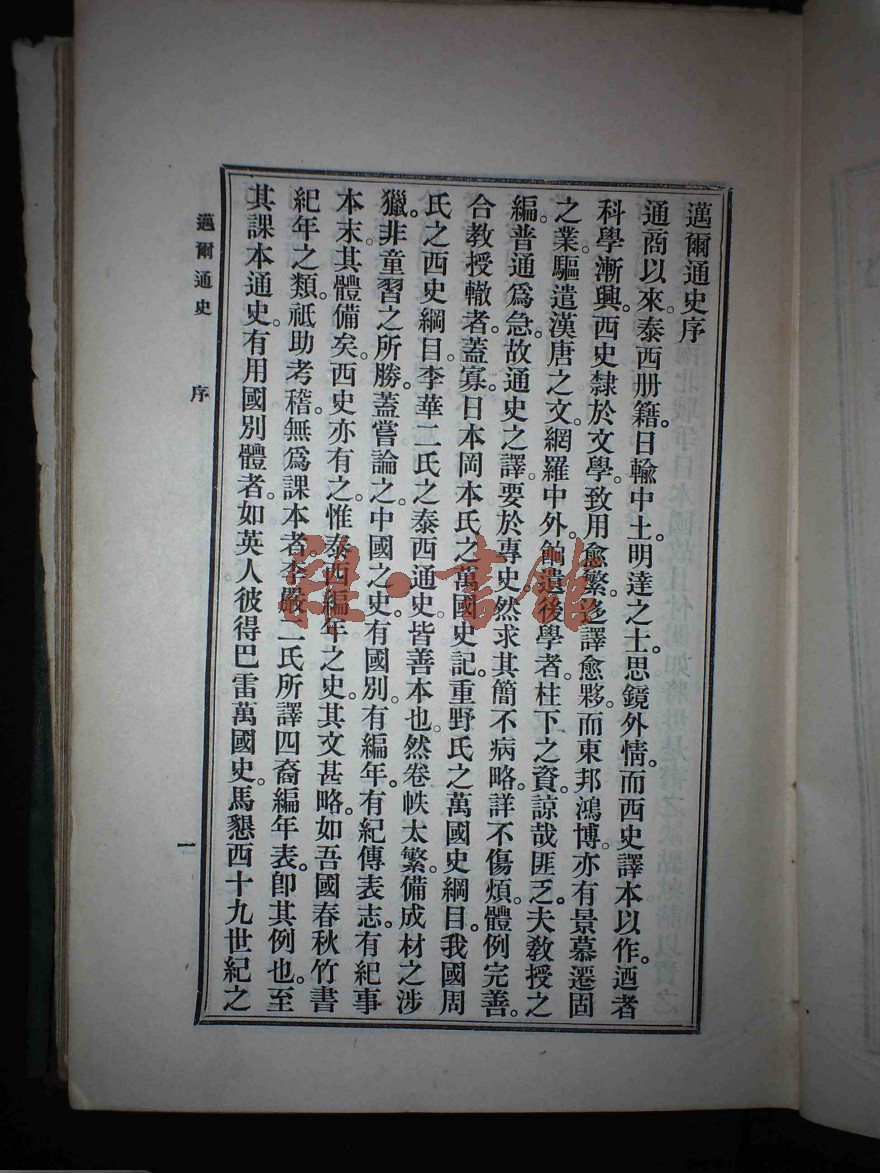 邁爾通史序
通商以來。泰西册籍。日輸中土。明達之士。思鏡外情。而西史譯本以作。迺者
科學漸興。西史隸於文學。致用愈繁。迻譯愈夥。而東邦鴻博。亦有景慕遷固
之業。驅遣漢唐之文。網羅中外。餉遺後學者。柱下之資。諒哉匪乏。夫敎授之
編。普通爲急。故通史之譯。要於專史。然求其簡不病略。詳不傷煩。體例完善。
合敎授轍者。蓋寡。日本岡本氏之萬國史記。重野氏之萬國史綱目。我國周
氏之西史綱目。李華二氏之泰西通史。皆善本也。然卷帙太繁。備成材之涉
獵。非童習之所勝。蓋嘗論之。中國之史。有國別。有編年。有紀傳表志。有紀事
本末。其體備矣。西史亦有之。惟泰西編年之史。其文甚略。如吾國春秋竹書
紀年之類。祗助考稽。無爲課本者。李嚴二氏所譯四裔編年表。卽其例也。至
其課本通史。有用國別體者。如英人彼得巴雷萬國史。馬懇西十九世紀之
邁爾通史 序 一
雜·書館